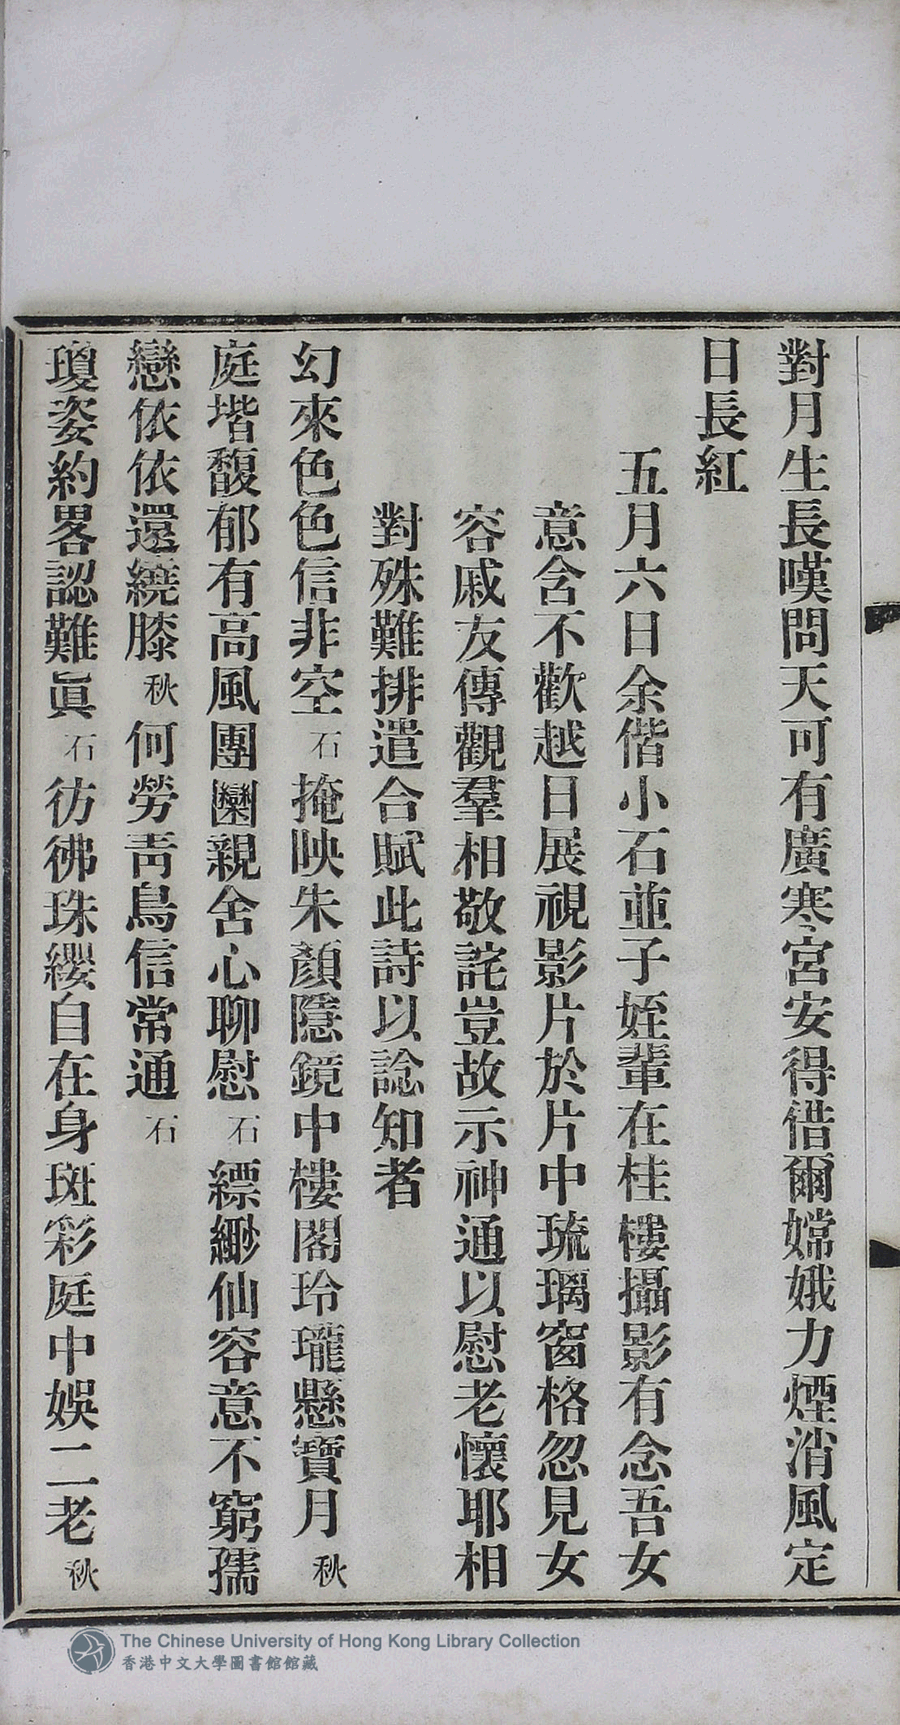 對月生長嘆問天可有廣寒宮安得借爾嫦娥力煙消風定
日長紅
五月六日余偕小石並子姪輩在桂樓攝影有念吾女
意含不歡越日展視影片於片中琉璃窗格忽見女
容戚友傳觀羣相敬詫豈故示神通以慰老懷耶相
對殊難排遣合賦此詩以諗知者
幻來色色信非空石掩映朱顏隱鏡中樓閣玲瓏懸寶月秋
庭堦馥郁有高風團圞親舍心聊慰石縹緲仙容意不窮孺
戀依依還繞膝秋何勞靑鳥信常通石
瓊姿約畧認難眞石彷彿珠纓自在身斑彩庭中娛二老秋
The Chinese University of Hong Kong Library Collection
香港中文大學圖書館館藏